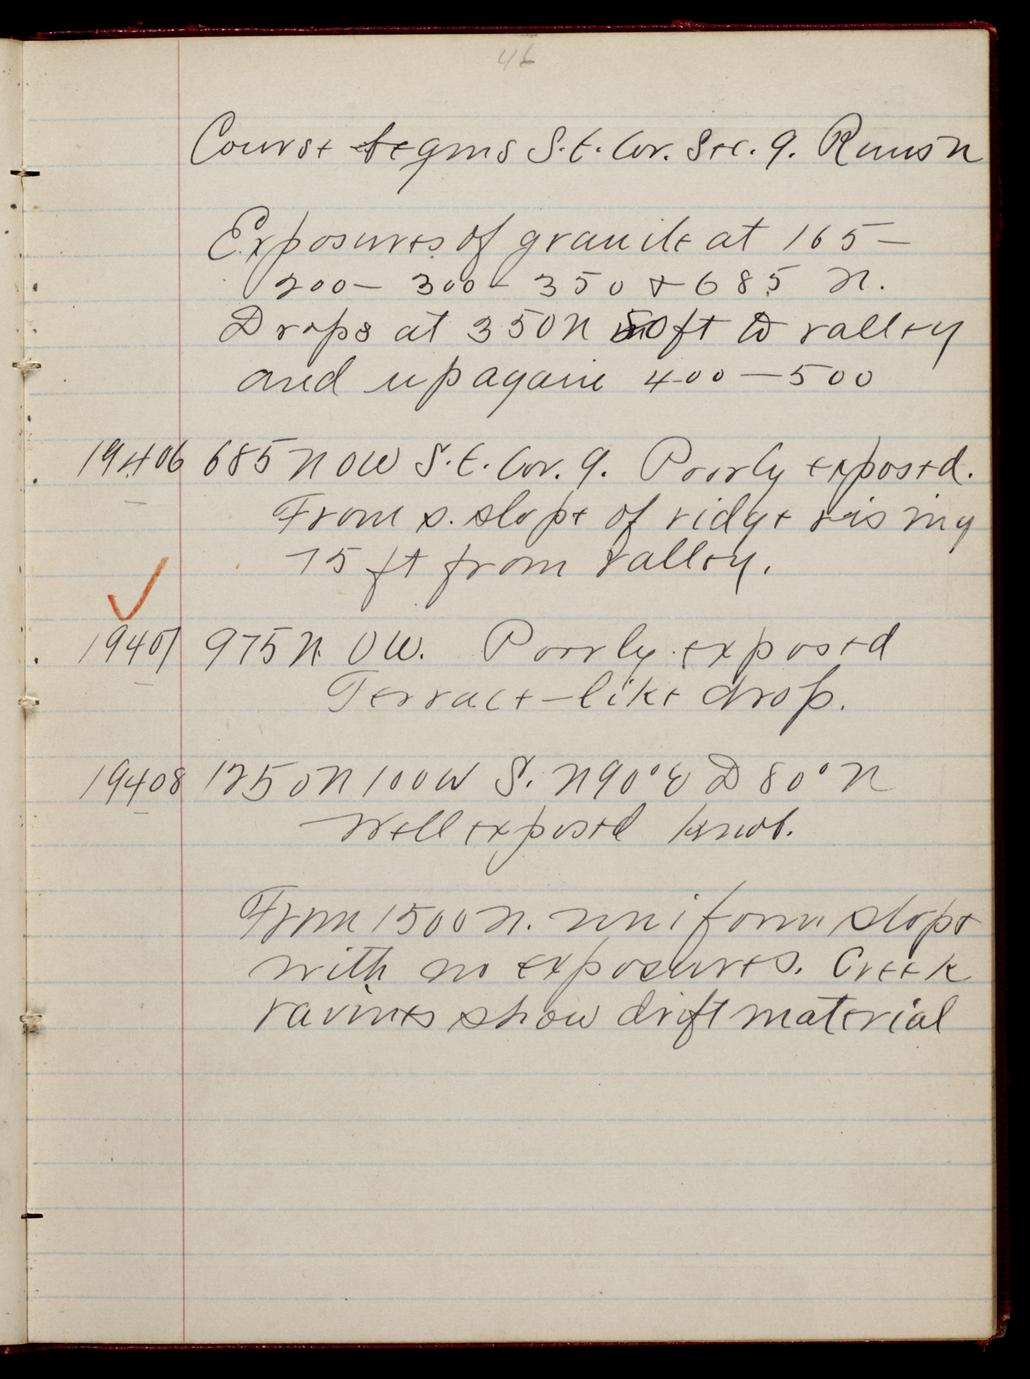 46
Course begins S.E. Cor. Sec. 9. Runs N
Exposures of granite at 165 —
200 — 300 — 350 & 685 N.
Drops at 350N 50ft to valley
and up again 400 — 500
19406 685 N 0W S.E. Cor. 9. Poorly exposed.
From s. slope of ridge rising
75 ft from valley.
19407 975 N 0W. Poorly exposed
Terrace-like drop.
19408 1250N 100W S. N90°E D 80° N
Well exposed knob.
From 1500 N. uniform slope
with no exposures. Creek
ravines show drift material